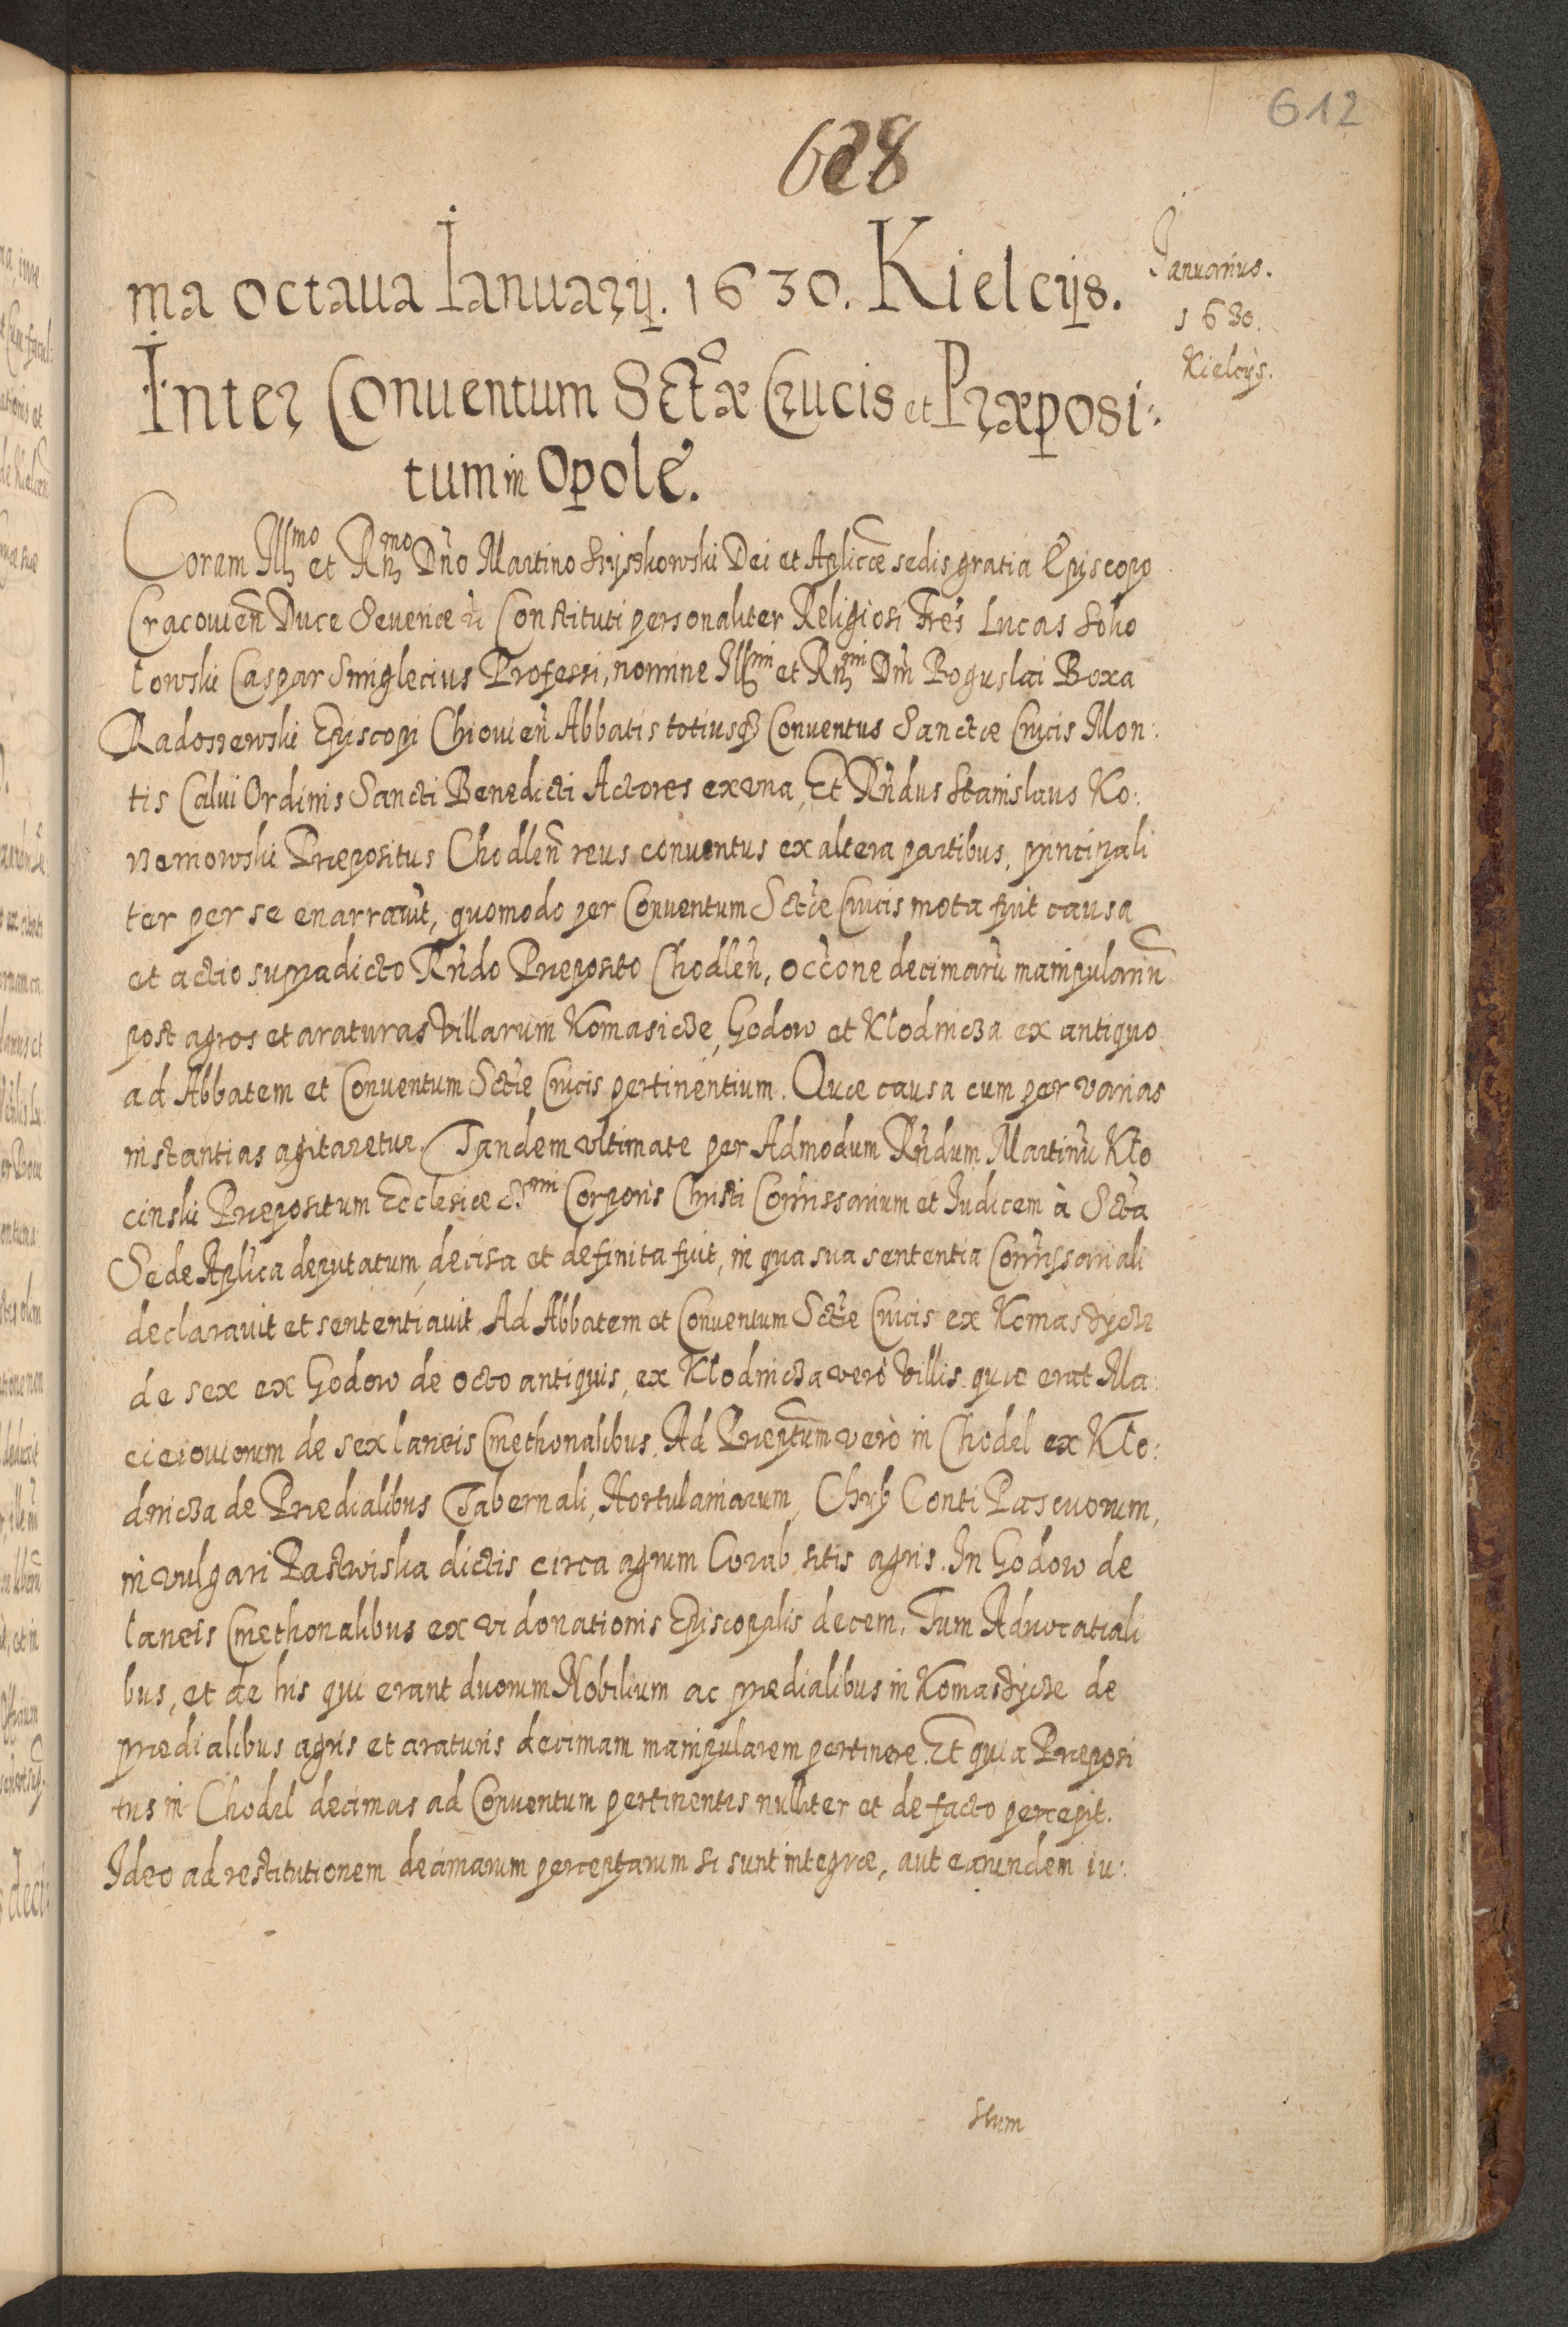 612
628
ma octaua Ianuarÿ. 1630. Kielcÿs.
Januarius.
1630.
Kielcÿs.
Inter Conuentum Sctæ Crucis et Præposi:
tum in Opole.
Coram Illmo et Rmo Dno Martino Szÿszkowski Dei et Aplicæ sedis gratia Episcopo
Cracouien Duce Seueriæ Constituti personaliter Religiosi Fres Lucas Soko
lowski Caspar Smiglecius Professi, nomine Illmi et Rmi Dni Boguslai Boxa
Radoszewski Episcopi Chiouien Abbatis totiusq Conuentus Sanctæ Crucis Mon:
tis Calui Ordinis Sancti Benedicti Actores ex vna, Et Rndus Stanislaus Ko:
Præpositus Chodlen reus conuentus ex altera partibus, principali
ter per se enarrauit, quomodo per Conuentum Sctæ Crucis mota fuit causa
et actio supradicto Rndo Præposito Chodlen, occone decimaru manipulariu
post agros et araturas Villarum Komasicze, Godow et Klodnicza ex antiquo
ad Abbatem et Conuentum Sctæ Crucis pertinentium. Quæ causa cum per varias
instantias agitaretur, Tandem vltimate per Admodum Rndum Martinu Klo
cinski Præpositum Ecclesiæ SSmi Corporis Christi Comissarium et Iudicem à Scta
Sede Aplica deputatum, decisa et definita fuit, in qua sua sententia Comissoriali
declarauit et sententiauit, Ad Abbatem et Conuentum Sctæ Crucis ex Komasdycze
de sex ex Godow de octo antiquis, ex Klodnicza verò Villis quæ erat Ma:
cieiouiorum de sex laneis Cmethonalibus, Ad Præptum verò in Chodel ex Klo:
dnicza de Prædialibus Tabernali, Hortulaniarum, Chyb Conti Pascuorum,
in vulgari Pastwiska dictis circa agrum Corab sitis agris. In Godow de
laneis Cmethonalibus ex vi donationis Episcopalis decem. Tum Aduocatiali
bus, et de his qui erant duorum Nobilium ac prædialibus in Komasdycze de
prædialibus agris et araturis decimam manipularem pertinere. Et quia Præposi
tus in Chodel decimas ad Conuentum pertinentes nulliter et de facto percepit.
Ideo ad restitutionem decimarum perceptarum si sunt integræ, aut earundem iu:
stum